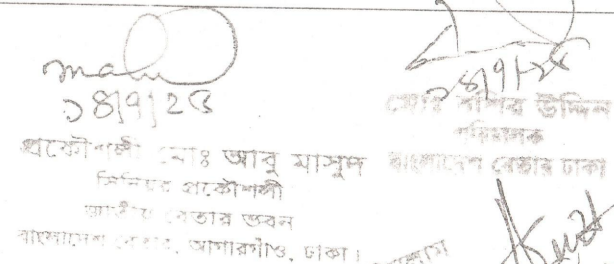 ১৪/৭/২৫
১৪/৭/২৫
প্রকৌশলী মোঃ আবু মাসুদ
সিনিয়র প্রকৌশলী
জাতীয় বেতার ভবন
বাংলাদেশ বেতার, আগারগাঁও, ঢাকা।
মোঃ বশির উদ্দিন
পরিচালক
বাংলাদেশ বেতার ঢাকা